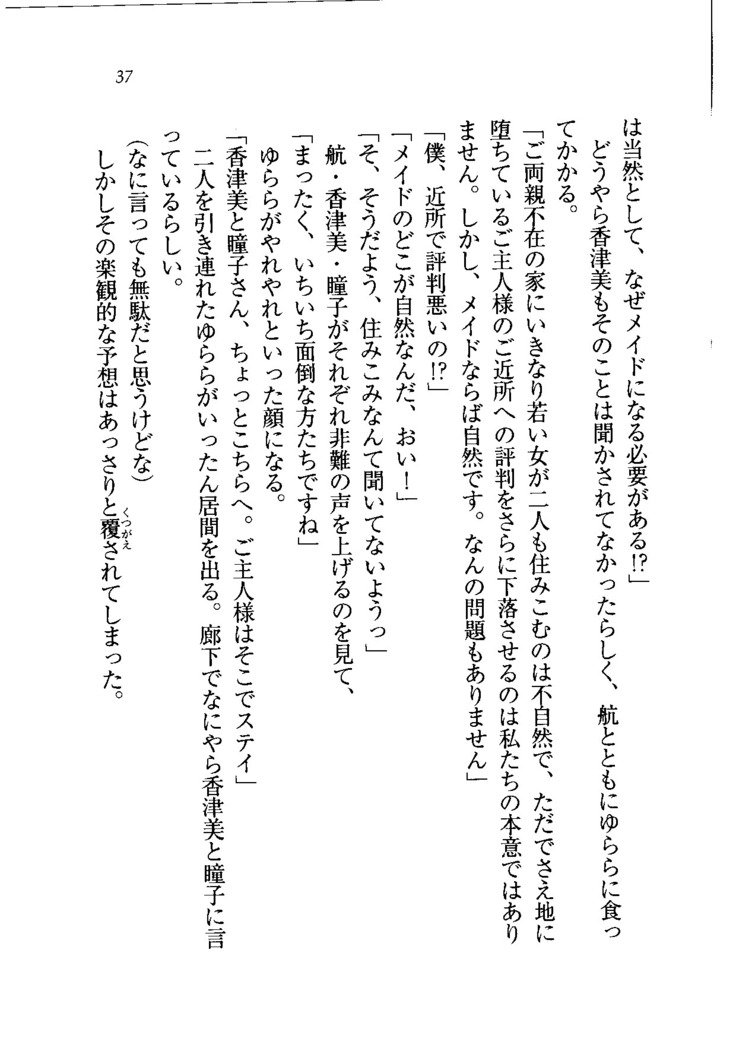 37
は当然として、なぜメイドになる必要がある!?」
　どうやら香津美もそのことは聞かされてなかったらしく、航とともにゆららに食っ
てかかる。
「ご両親不在の家にいきなり若い女が二人も住みこむのは不自然で、ただでさえ地に
堕ちているご主人様のご近所への評判をさらに下落させるのは私たちの本意ではあり
ません。しかし、メイドならば自然です。なんの問題もありません」
「僕、近所で評判悪いの!?」
「メイドのどこが自然なんだ、おい！」
「そ、そうだよう、住みこみなんて聞いてないようっ」
　航・香津美・瞳子がそれぞれ非難の声を上げるのを見て、
「まったく、いちいち面倒な方たちですね」
　ゆららがやれやれといった顔になる。
「香津美と瞳子さん、ちょっとこちらへ。ご主人様はそこでステイ」
　二人を引き連れたゆららがいったん居間を出る。廊下でなにやら香津美と瞳子に言
っているらしい。
（なに言っても無駄だと思うけどな）
　しかしその楽観的な予想はあっさりと覆されてしまった。
くつがえ